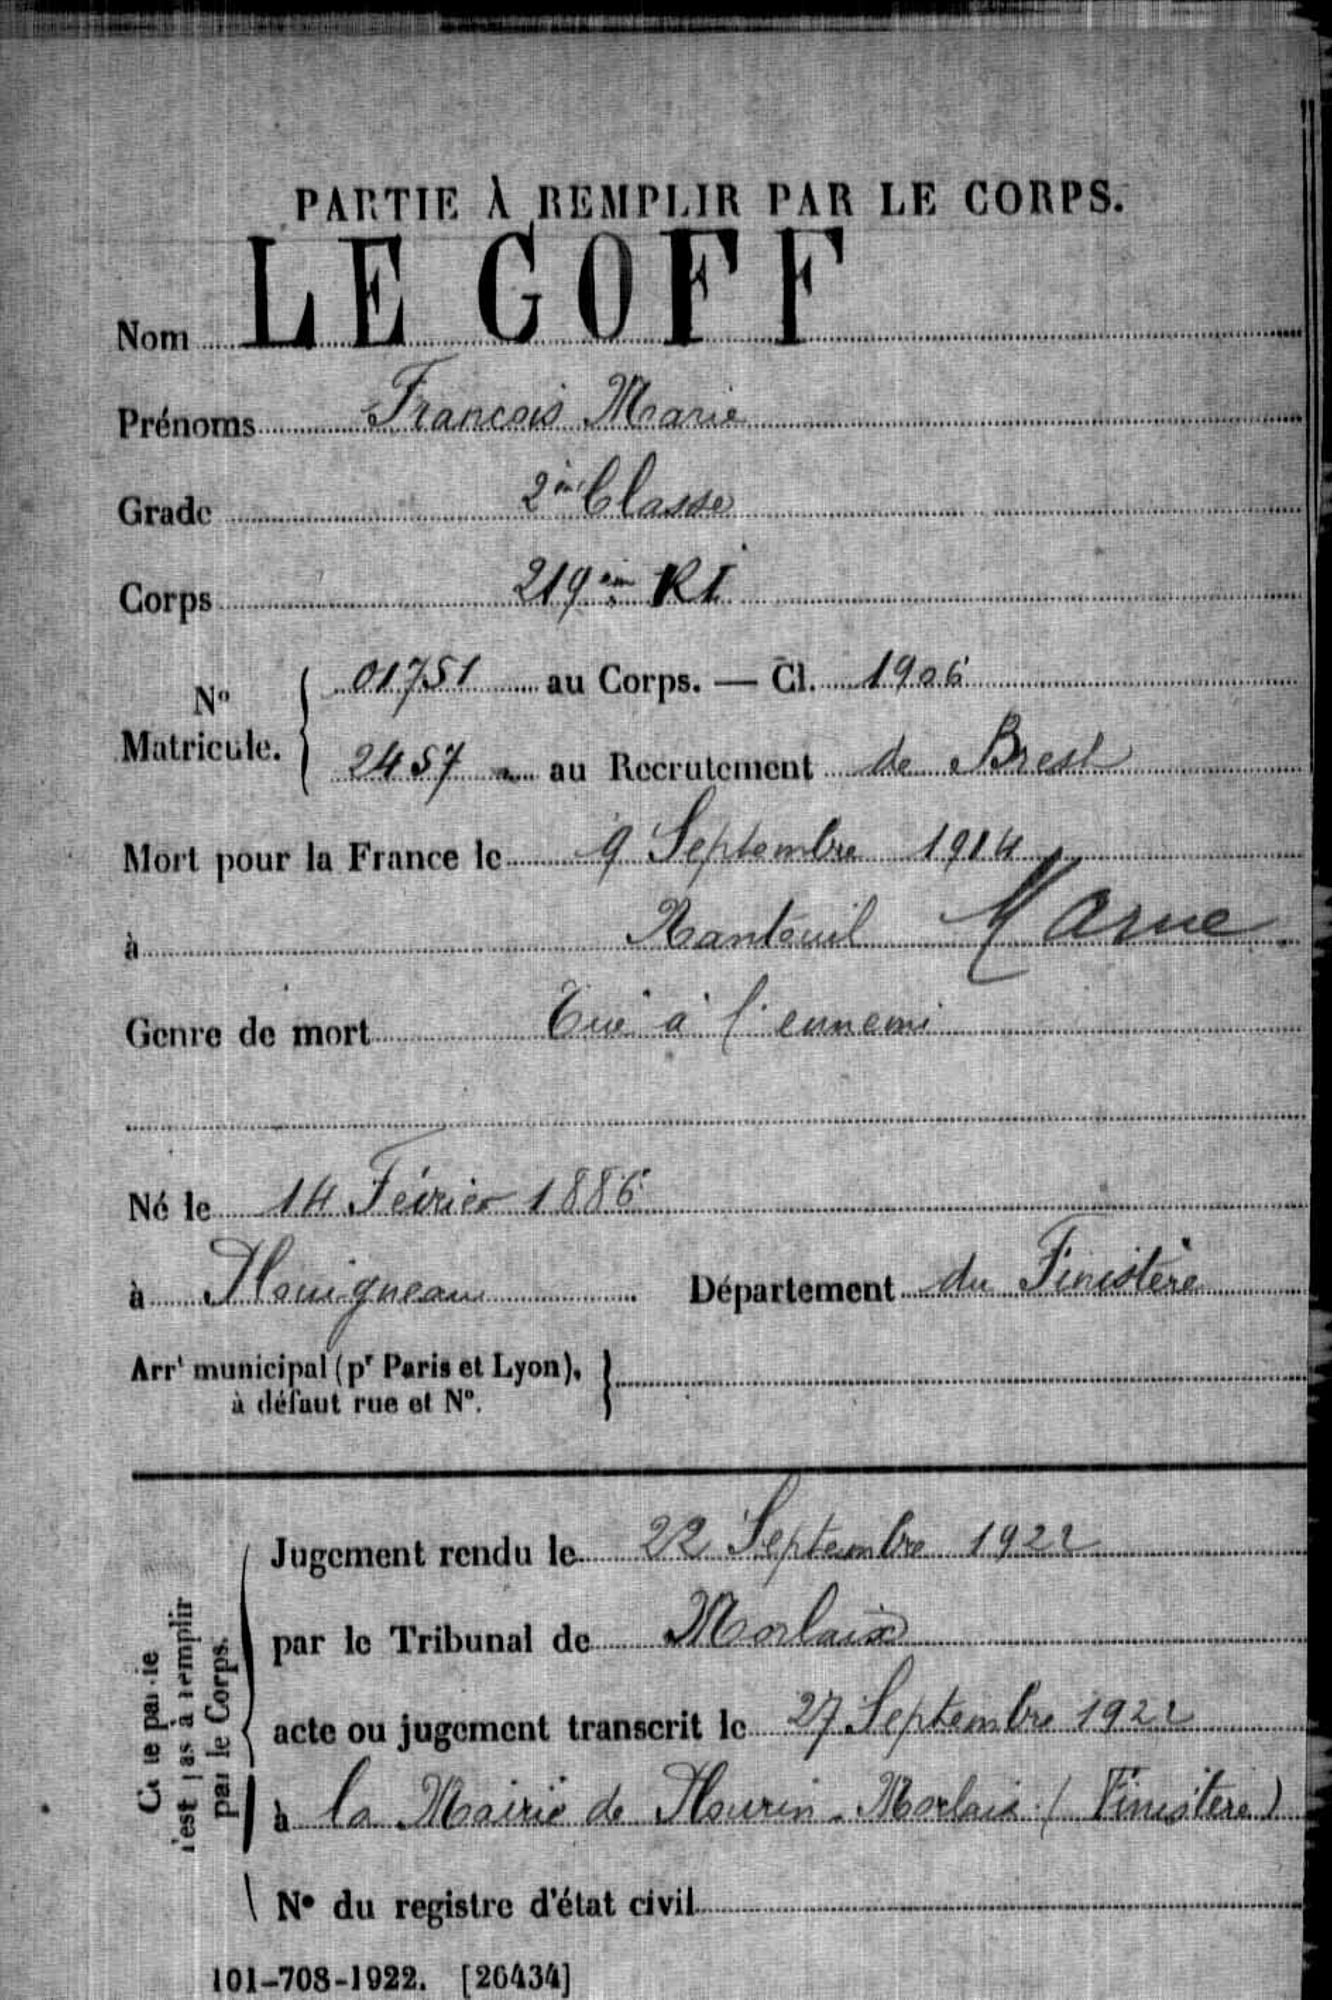 PARTIE À REMPLIR PAR LE CORPS.
Nom LE GOFF
Prénoms Francois Marie
Grade 2ème Classe
Corps 219ème RI
N° Matricule. 01751 au Corps. — Cl. 1906
2457 au Recrutement de Brest
Mort pour la France le 9 Septembre 1914
à Nanteuil Marne
Genre de mort Tué à l'ennemi
Né le 14 Février 1886
à Plouigneau Département du Finistère
Arrt municipal (pr Paris et Lyon),
à défaut rue et N°.
Jugement rendu le 22 Septembre 1922
par le Tribunal de Morlaix
acte ou jugement transcrit le 27 Septembre 1922
à la Mairie de Plourin-Morlaix (Finistère)
N° du registre d'état civil
Ce te partie
n'est pas à remplir
par le Corps.
101-708-1922. [26434]